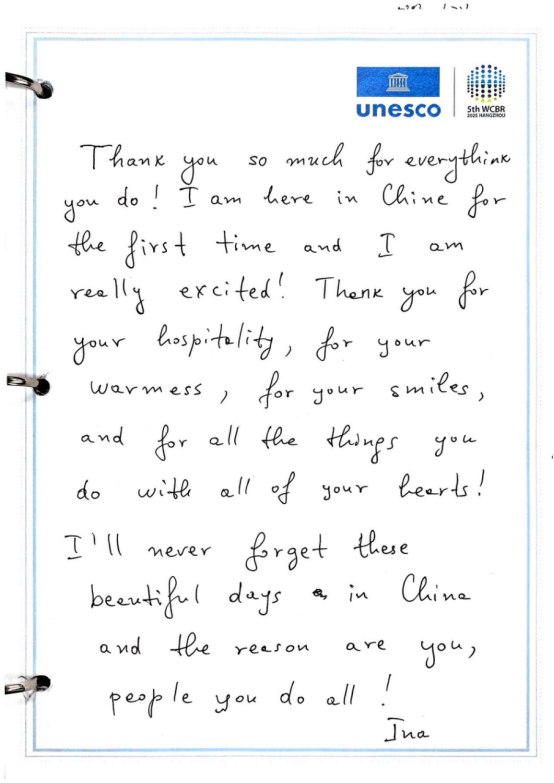 unesco
5th WCBR
2025 HANGZHOU
Thank you so much for everythink
you do! I am here in Chine for
the first time and I am
really excited! Thank you for
your hospitality, for your
warmess, for your smiles,
and for all the things you
do with all of your hearts!
I'll never forget these
beautiful days in China
and the reason are you,
people you do all!
Ina